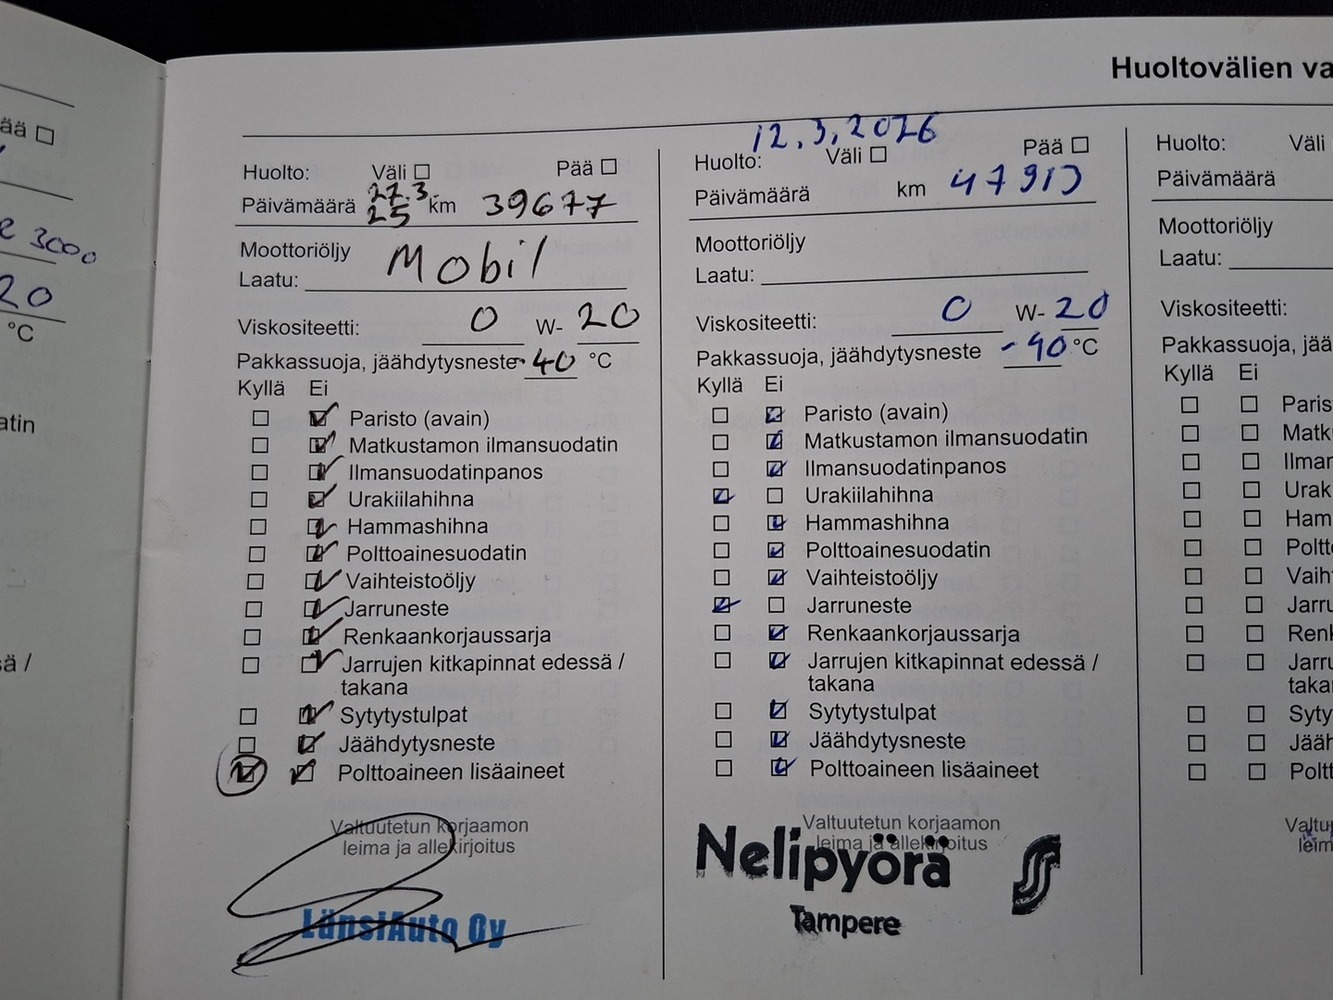 ää
e 3000
20
°C
atin
sä /
Huoltovälien va
Huolto: Väli Pää
Päivämäärä 27.3. 25 km 39677
Moottoriöljy
Laatu: Mobil
Viskositeetti: 0 W- 20
Pakkassuoja, jäähdytysneste -40 °C
Kyllä Ei
Paristo (avain)
Matkustamon ilmansuodatin
Ilmansuodatinpanos
Urakiilahihna
Hammashihna
Polttoainesuodatin
Vaihteistoöljy
Jarruneste
Renkaankorjaussarja
Jarrujen kitkapinnat edessä /
takana
Sytytystulpat
Jäähdytysneste
Polttoaineen lisäaineet
Valtuutetun korjaamon
leima ja allekirjoitus
LänsiAuto Oy
12.3.2026
Huolto: Väli Pää
Päivämäärä km
Moottoriöljy
Laatu:
Viskositeetti: 0 W- 20
Pakkassuoja, jäähdytysneste -40 °C
Kyllä Ei
Paristo (avain)
Matkustamon ilmansuodatin
Ilmansuodatinpanos
Urakiilahihna
Hammashihna
Polttoainesuodatin
Vaihteistoöljy
Jarruneste
Renkaankorjaussarja
Jarrujen kitkapinnat edessä /
takana
Sytytystulpat
Jäähdytysneste
Polttoaineen lisäaineet
Valtuutetun korjaamon
leima ja allekirjoitus
Nelipyörä
Tampere
Huolto: Väli
Päivämäärä
Moottoriöljy
Laatu:
Viskositeetti:
Pakkassuoja, jää
Kyllä Ei
Paris
Matk
Ilmar
Urak
Ham
Poltt
Vaih
Jarru
Renk
Jarru
taka
Syty
Jääh
Poltt
Valtu
leim